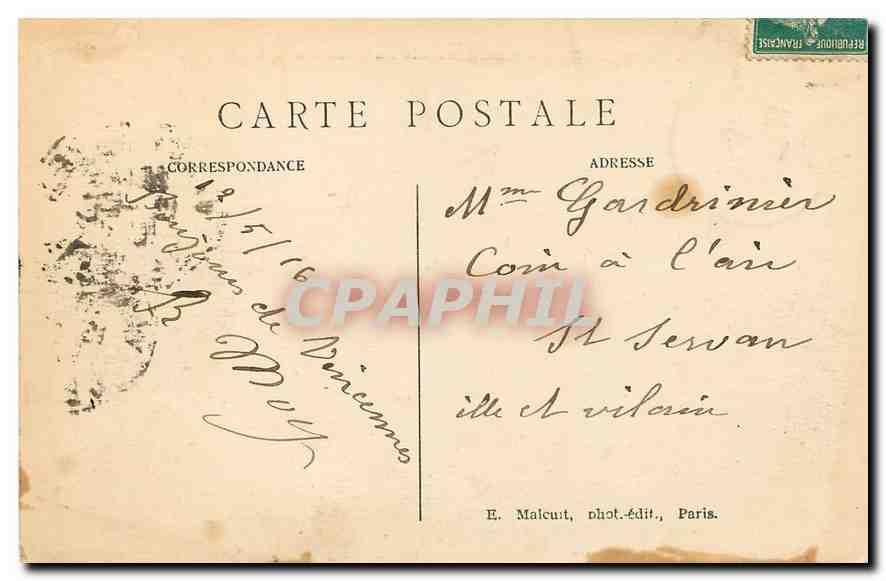 REPUBLIQUE FRANÇAISE
CARTE POSTALE
CORRESPONDANCE
ADRESSE
18/5/16
Bonjour de Vincennes
Mme Gardrinier
Coin à l'air
St Servan
ille et vilain
CPAPHIL
E. Malcuit, phot.-édit., Paris.